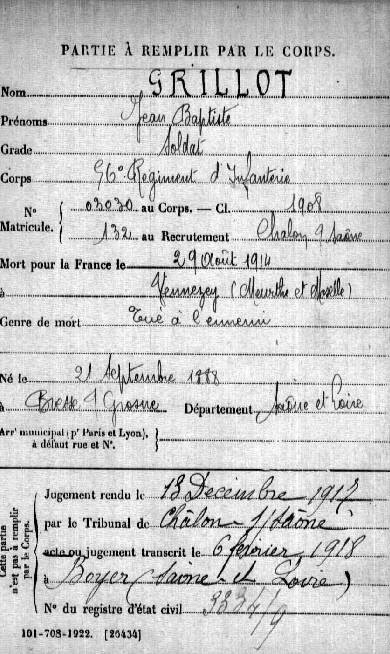 PARTIE À REMPLIR PAR LE CORPS.
Nom GRILLOT
Prénoms Jean Baptiste
Grade Soldat
Corps 56e Régiment d'Infanterie
N° Matricule. { 03030 au Corps. — Cl. 1908
132 au Recrutement Chalon s/ Saône
Mort pour la France le 29 Août 1914
à Vennezey (Meurthe et Moselle)
Genre de mort Tué à l'ennemi
Né le 21 Septembre 1888
à Bresse s/ Grosne Département Saône et Loire
Arrt municipal (pr Paris et Lyon), à défaut rue et N°.
Cette partie n'est pas à remplir par le Corps.
Jugement rendu le 18 Décembre 1917
par le Tribunal de Châlon-s/Saône
acte ou jugement transcrit le 6 février 1918
à Boyer (Saône-et Loire)
N° du registre d'état civil
101-708-1922. [26434]